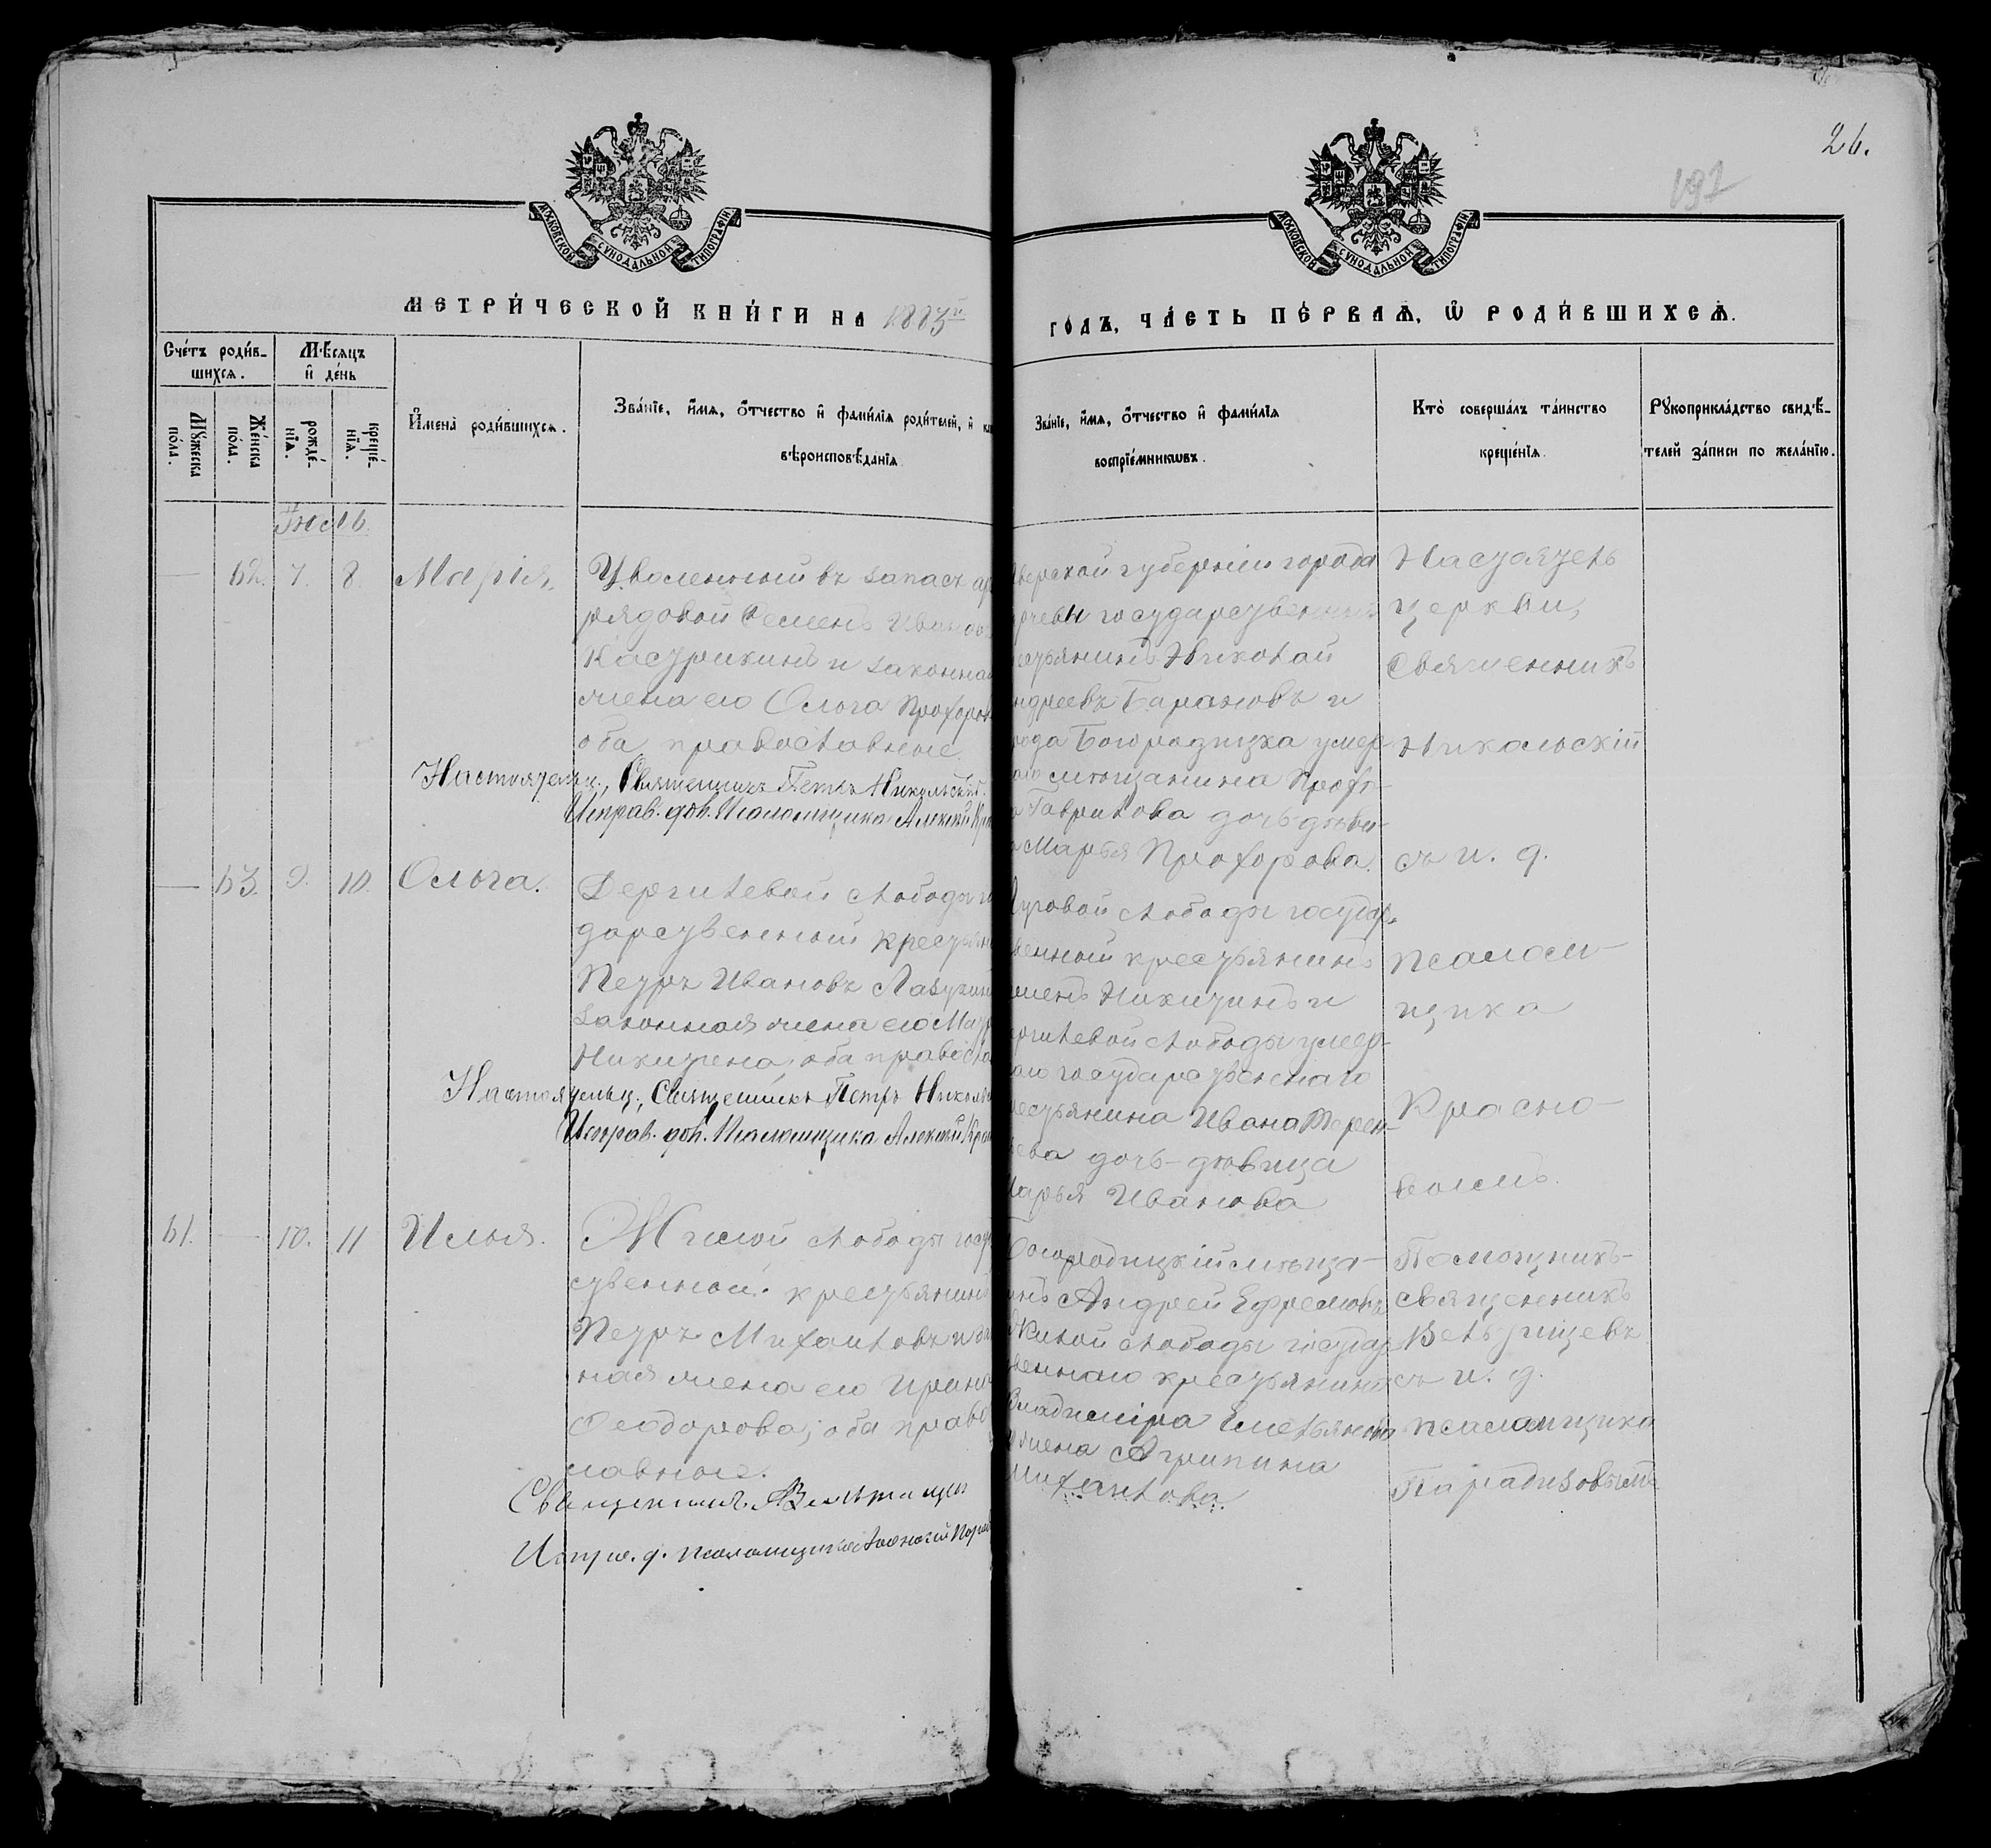 26.
197
МОСКОВСКОЙ СѴНОДАЛЬНОЙ ТИПОГРАФІИ
МОСКОВСКОЙ СѴНОДАЛЬНОЙ ТИПОГРАФІИ
МЕТРИ́ЧЕСКОЙ КНИ́ГИ НА 1883й
ГО́ДЪ, ЧА́СТЬ ПЕ́РВАѦ, Ѿ РОДИ́ВШИХСѦ.
Сче́тъ роди́в-
шихсѧ.
Мꙋ́жеска по́ла.
Же́нска по́ла.
Мѣ́сѧцъ
и҆ де́нь
рожде́-
нїѧ.
креще́-
нїѧ.
И҆мена̀ роди́вшихсѧ.
Зва́нїе, и҆́мѧ, ѻ҆́тчество и҆ фами́лїѧ роди́телей, и҆
вѣроисповѣ́данїѧ
Зва́нїе, и҆́мѧ, ѻ҆́тчество и҆ фами́лїѧ
воспрїе́мникѡвъ.
Кто̀ соверша́лъ та́инство
креще́нїѧ.
Рꙋкоприкла́дство свидѣ́-
телей за́писи по жела́нїю.
Іюль
— 62. 7. 8. Марія,
Уволенный въ запасъ ар
рядовой Семенъ Иванов
Кастрикинъ и законна
жена его Ольга Прохоров
оба православные
Настоятель, Священникъ Петръ Никольскій.
Исправ. дол. Псаломщика Алексѣй Кра
верской губерніи города
государственный
естьянинъ Николай
ндреевъ Барановъ и
рода Богородицка умер-
аго мѣщанина Прохо-
а Гаврилова дочь-дѣви-
а Марья Прохорова.
Настоятель
церкви,
Священникъ
Никольскій
съ и. д.
псалом-
щика
Красно-
вымъ.
— 63. 9. 10. Ольга.
Дергилевой слободы го
дарственный крестьян
Петръ Ивановъ Лазукин
законная жена его
Никитена, оба правосла
Настоятель, Священникъ Петръ Николь
Исправ. дол. Псаломщика Алексѣй Кра
Луговой слободы государ-
венный крестьянинъ
Никитинъ и
ргилевой слободы умер-
аго государственнаго
рестьянина Ивана Терен-
ева дочь-дѣвица
арья Иванова
61. — 10. 11 Илья.
слободы госуд
ственной крестьянин
Петръ Михаиловъ и за
ная жена его Ирин
Ѳеодорова; оба право
лавные.
Священникъ Вельтищев
Исправ. д. псаломщика
Богородицкій мѣща-
инъ Андрей Ефремовъ
слободы государ
веннаго крестьянина
Владиміра Емельянова
жена Агрипина
Михаилова.
Помощникъ-
священникъ
Вельтищевъ
съ и. д.
псаломщика
Парадизовымъ